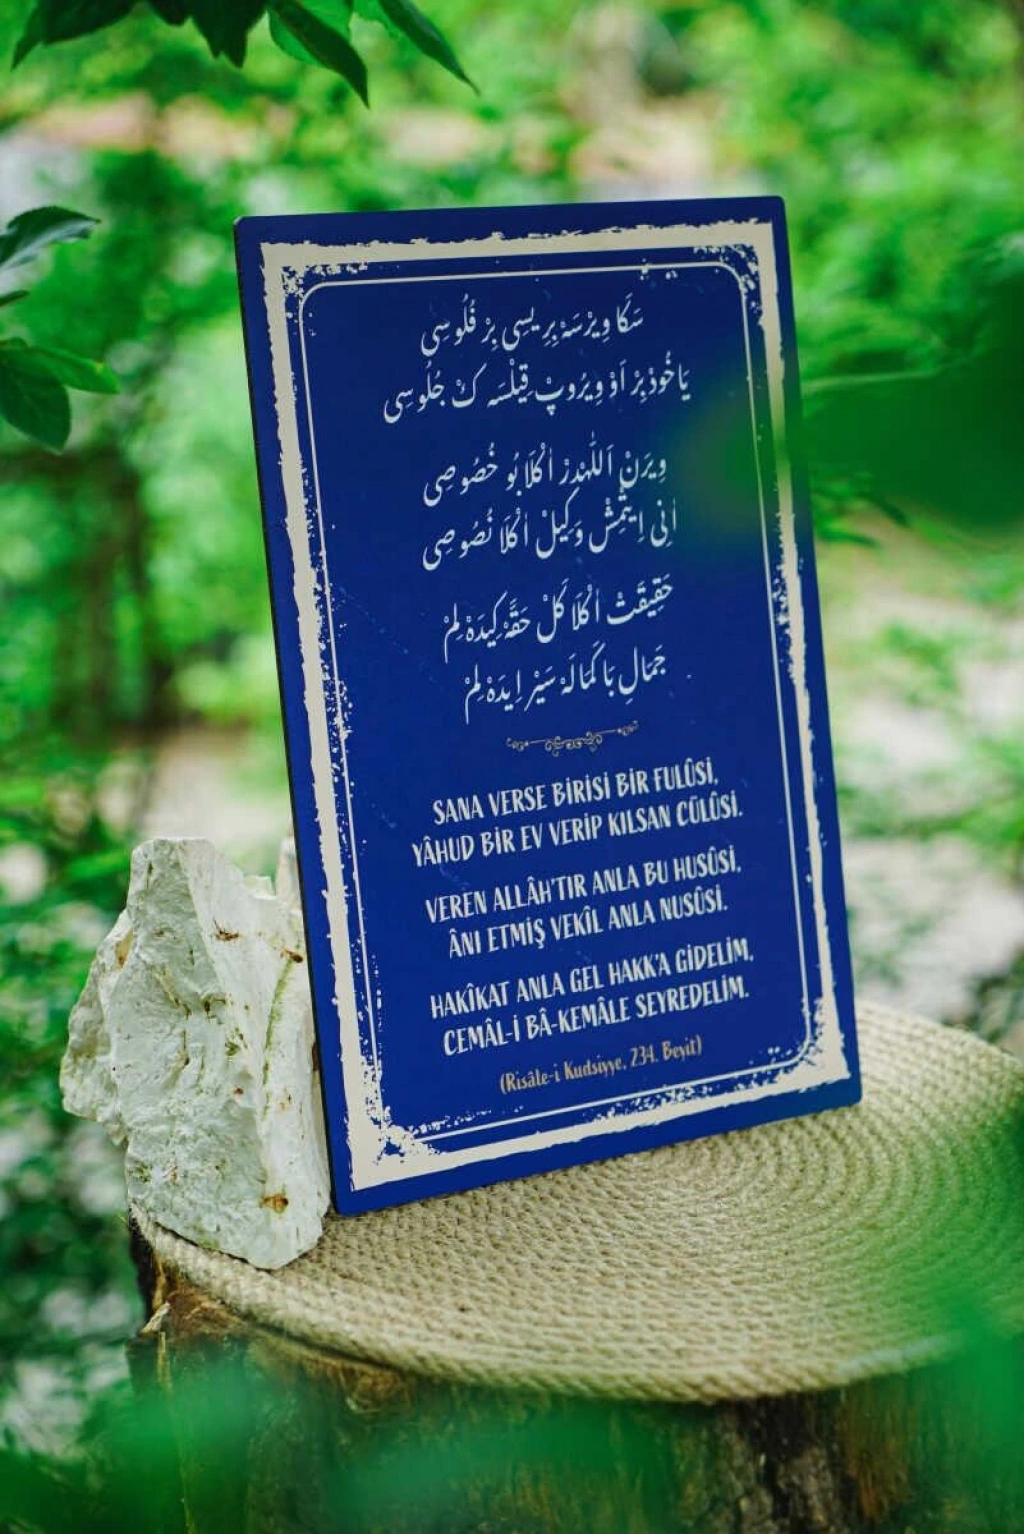 سَكَا وِيرْسَهْ بِرِيسِى بِرْ فُلُوسِى
يَاخُودْ بِرْ اَوْ وِيرُوپْ قِيلْسَه كْ جُلُوسِى
وِيرَنْ اَللّٰهدِرْ اٰكْلَا بُو خُصُوصِى
اٰنِى اِيتْمِشْ وَكِيلْ اٰكْلَا نُصُوصِى
حَقِيقَتْ اٰكْلَا كَلْ حَقَّه كِيدَه لِمْ
جَمَالِ بَا كَمَالَهْ سَيْرْ اِيدَه لِمْ
SANA VERSE BİRİSİ BİR FULÛSİ,
YÂHUD BİR EV VERİP KILSAN CÜLÛSİ.
VEREN ALLÂH'TIR ANLA BU HUSÛSİ,
ÂNI ETMİŞ VEKÎL ANLA NUSÛSİ.
HAKÎKAT ANLA GEL HAKK'A GİDELİM,
CEMÂL-İ BÂ-KEMÂLE SEYREDELİM.
(Risâle-i Kudsiyye, 234. Beyit)